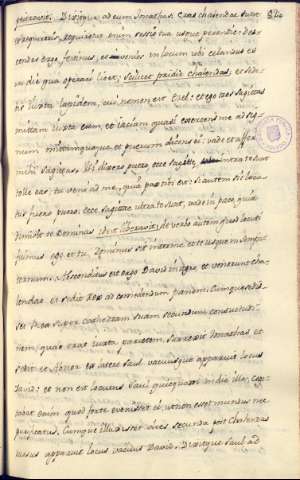 84
Dixitque ad eum Jonathas: Cras chalendae sunt
et requireris, requiretur enim sessio tua usque perendie: des-
cendes ergo festinus, et venies in locum ubi celandus es
in die qua operari licet; et sede-
bis iuxta lapidem, cui nomen est Ezel: et ego tres sagittas
mittam iuxta eum, et iaciam quasi exercens me ad sig-
num mittamque et puerum dicens ei, vade et affer
mihi sagittas. Si dixero puero ecce sagittae intra te sunt
tolle eas: tu veni ad me, quia pax tibi est: si autem sic locu-
tus fuero puero: Ecce sagittae ultra te sunt, vade in pace, quia
dimisit te Dominus de verbo autem quod locuti
fuimus ego et tu, Dominus sit inter me et te usque in sempi-
ternum. Absconditus est ergo David in agro, et venerunt cha-
lendae et sedit Rex ad comedendum panem. Cumque sedis-
set Rex super cathedram suam secundum consuetudi-
nem, quae erat iuxta parietem, surrexit Jonathas, et
sedit Abner ex latere Saul, vacuusque apparuit locus
David: et non est locutus Saul quicquam in die illa, cogi-
tabat enim quod forte evenisset ei, ut non esset mundus nec
purificatus. Cumque illuxisset dies secunda post Chalendas
rursus apparuit locus vacuus David. Dixitque Saul ad